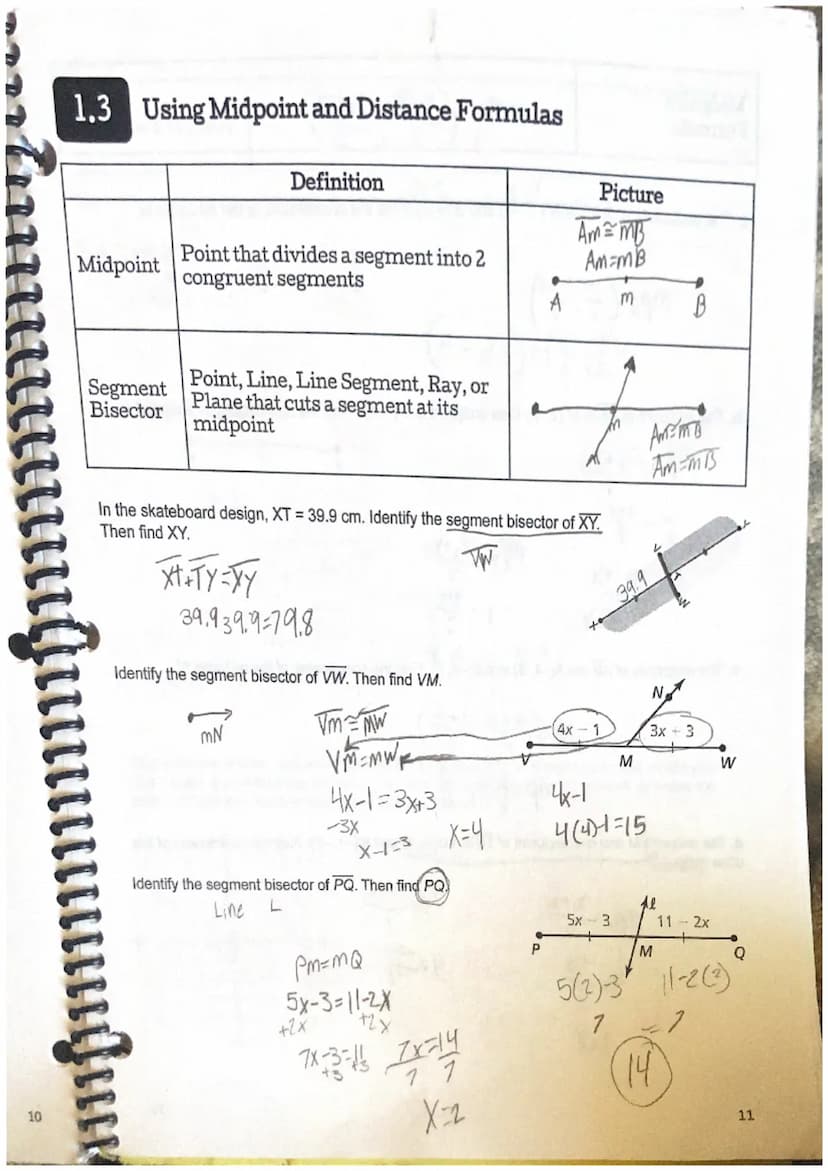 1.3 Using Midpoint and Distance Formulas
Definition
Picture
Midpoint
Point that divides a segment into 2
congruent segments
Am ≅ mB
Am=mB
A m B
Segment
Bisector
Point, Line, Line Segment, Ray, or
Plane that cuts a segment at its
midpoint
m
Am≅mB
Am=mB
In the skateboard design, XT = 39.9 cm. Identify the segment bisector of XY.
Then find XY.
VW
Xt+TY=XY
39.9 39.9=79.8
39.9
Identify the segment bisector of VW. Then find VM.
mN
Vm≅MW
Vm=mW
4x-1=3x+3
-3x
x-1=3
x=4
N
4x – 1
3x + 3
V M W
4x-1
4(4)-1=15
Identify the segment bisector of PQ. Then find PQ.
Line L
Pm=mQ
5x-3=11-2x
+2x +2x
7x-3=11
+3 +3
7x=14
7 7
x=2
ℓ
5x – 3
11 – 2x
P M Q
5(2)-3 11-2(2)
7 = 7
14
10
11